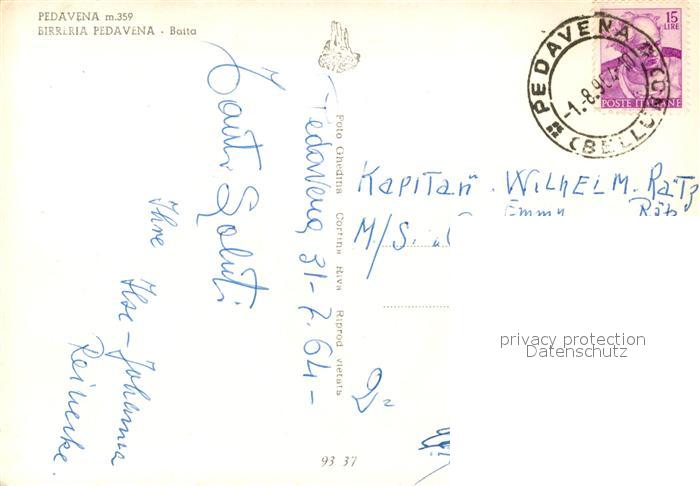 PEDAVENA m.359
BIRRERIA PEDAVENA - Baita
15
LIRE
POSTE ITALIANE
PEDAVENA
-1.-8.96
(BELLU
Tanti Saluti
Ihre Ilse - Johanna
Reinecke.
Pedavena, 31-7.64-
Foto Ghedina Cortina Riva Riprod vietata
Kapitän. WILHELM. Rätz
Emmy
M/S.
D=
93 37
privacy protection
Datenschutz